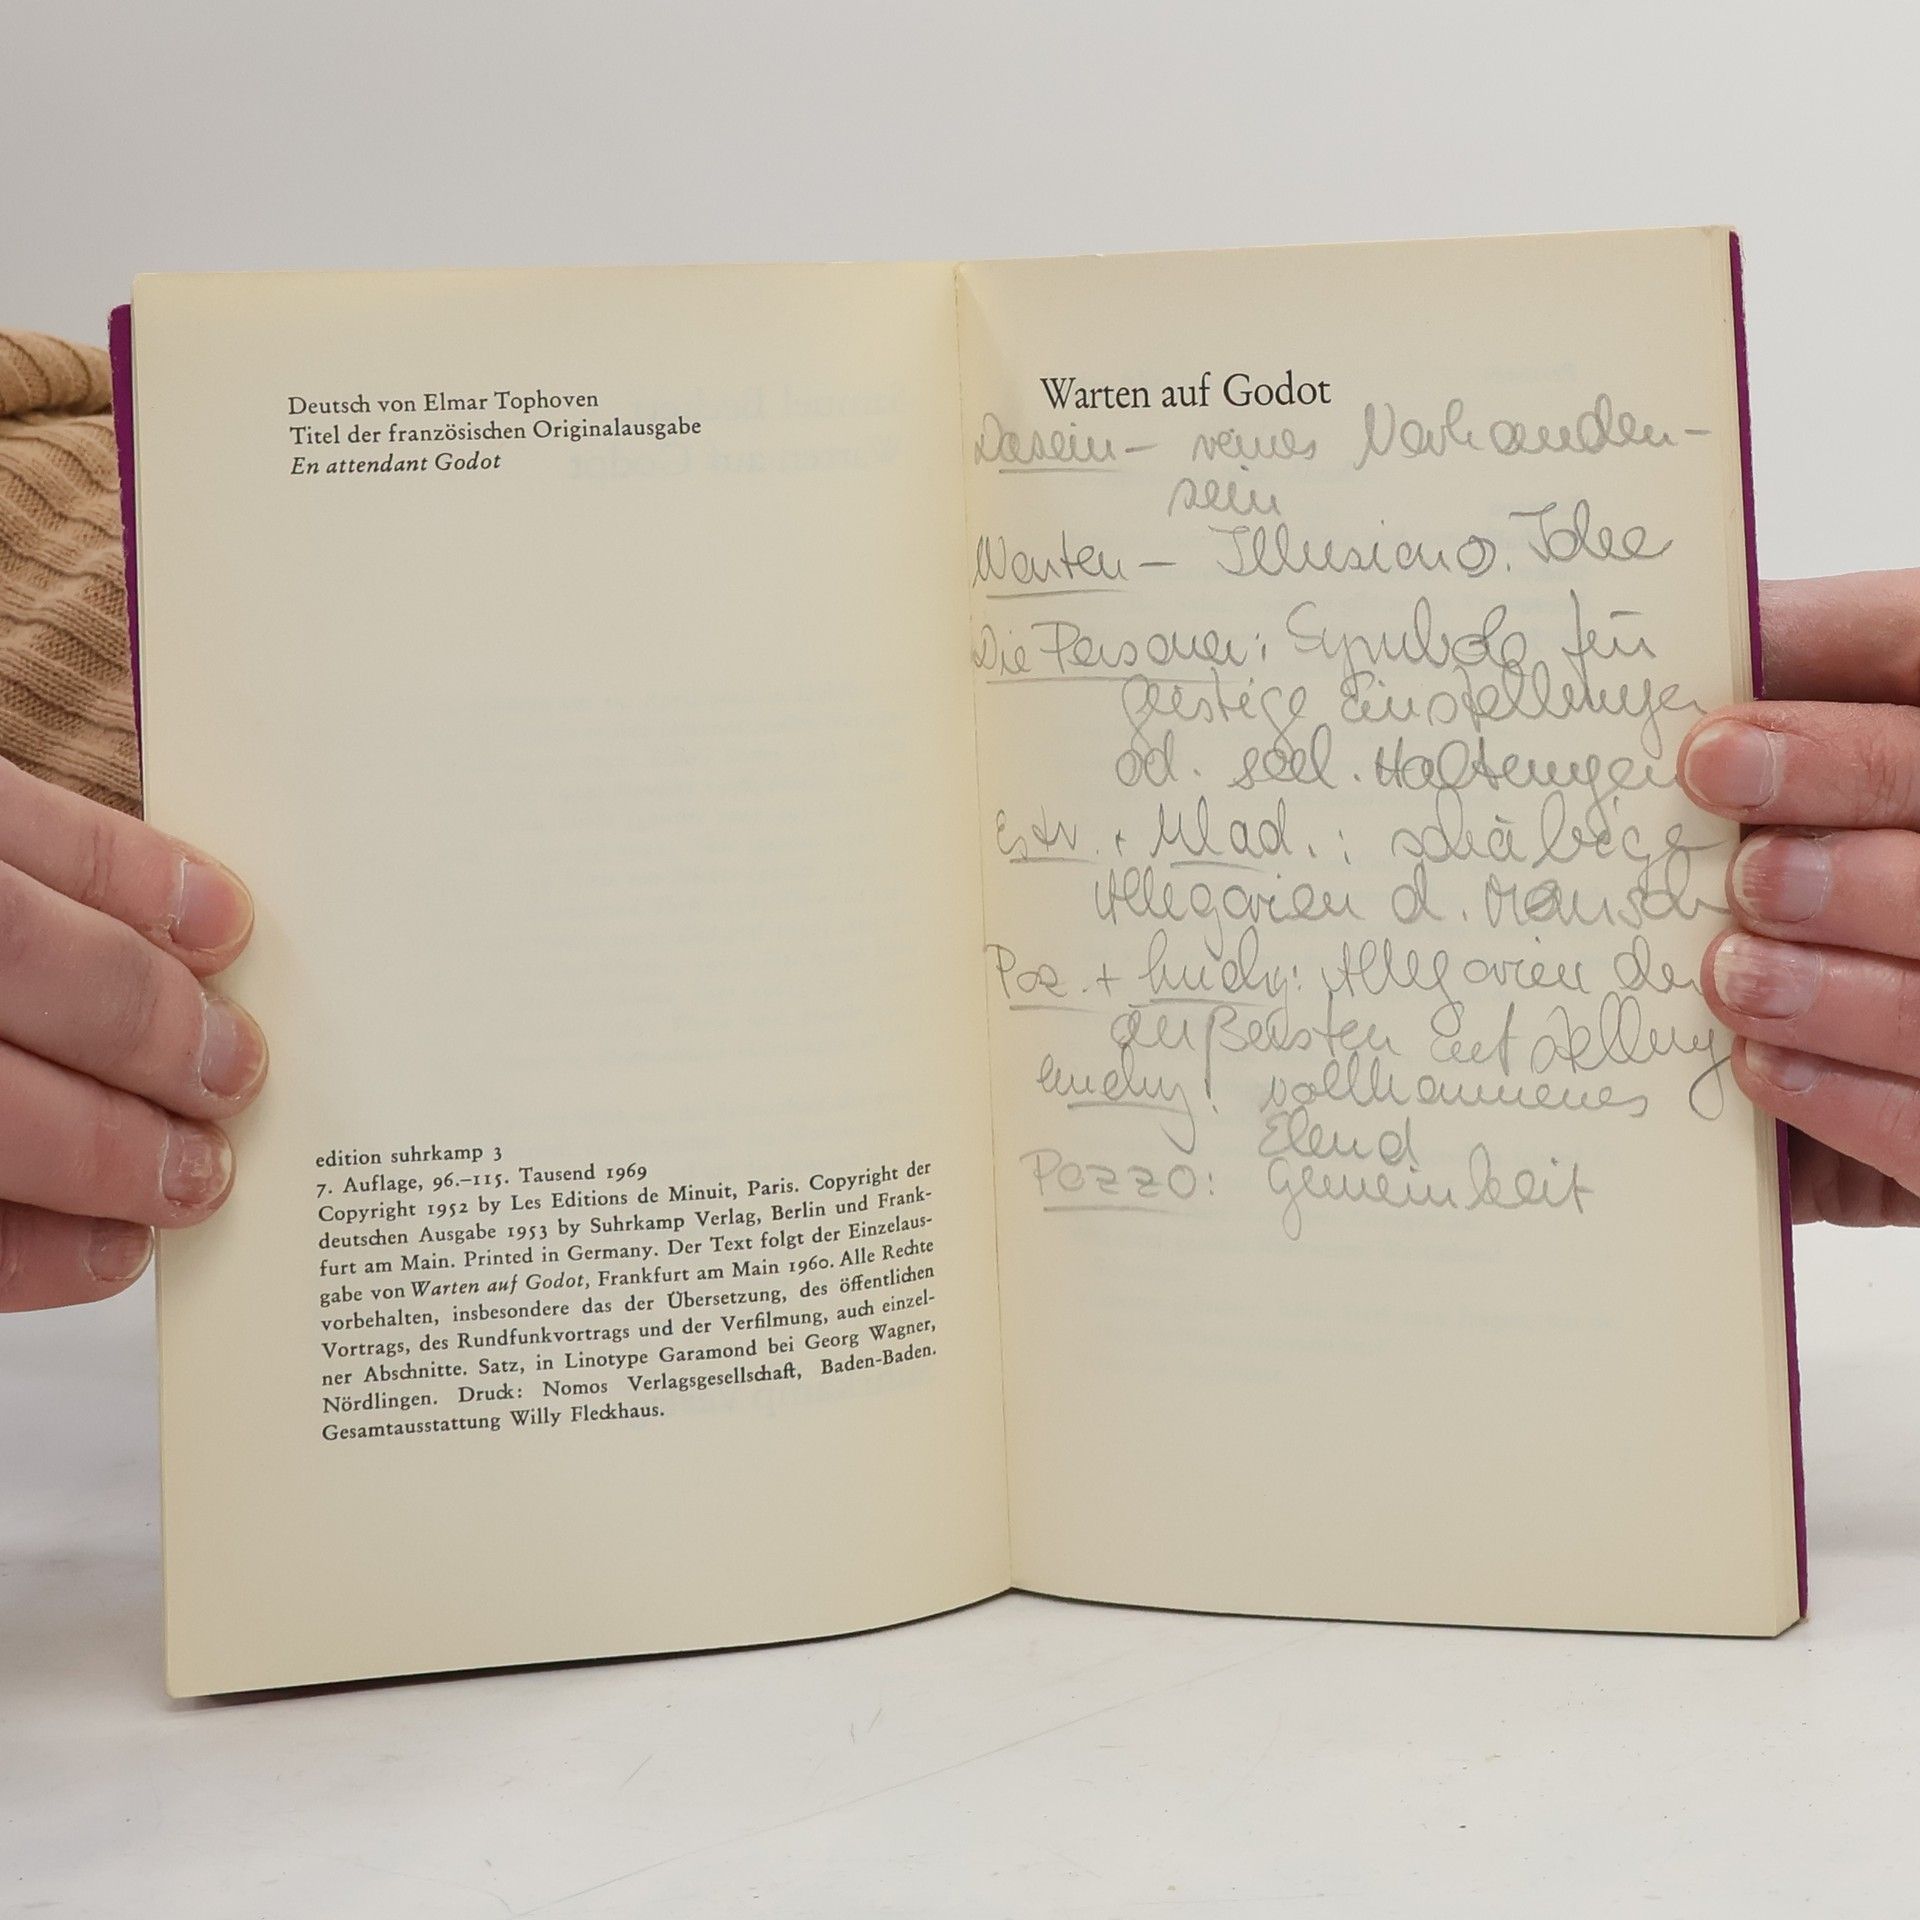 Deutsch von Elmar Tophoven
Titel der französischen Originalausgabe
En attendant Godot
edition suhrkamp 3
7. Auflage, 96.–115. Tausend 1969
Copyright 1952 by Les Editions de Minuit, Paris. Copyright der
deutschen Ausgabe 1953 by Suhrkamp Verlag, Berlin und Frank-
furt am Main. Printed in Germany. Der Text folgt der Einzelaus-
gabe von Warten auf Godot, Frankfurt am Main 1960. Alle Rechte
vorbehalten, insbesondere das der Übersetzung, des öffentlichen
Vortrags, des Rundfunkvortrags und der Verfilmung, auch einzel-
ner Abschnitte. Satz, in Linotype Garamond bei Georg Wagner,
Nördlingen. Druck: Nomos Verlagsgesellschaft, Baden-Baden.
Gesamtausstattung Willy Fleckhaus.
Warten auf Godot
Dasein – reines Vorhanden-
sein
Warten – Illusion o. Idee
Die Personen: Symbole für
geistige Einstellungen
od. seel. Haltungen
Estr. + Wlad.: schäbige
Allegorien d. Mensch
Poz. + Lucky: Allegorien der
äußersten Entstellung
Lucky: vollkommenes
Elend
Pozzo: Gemeinheit